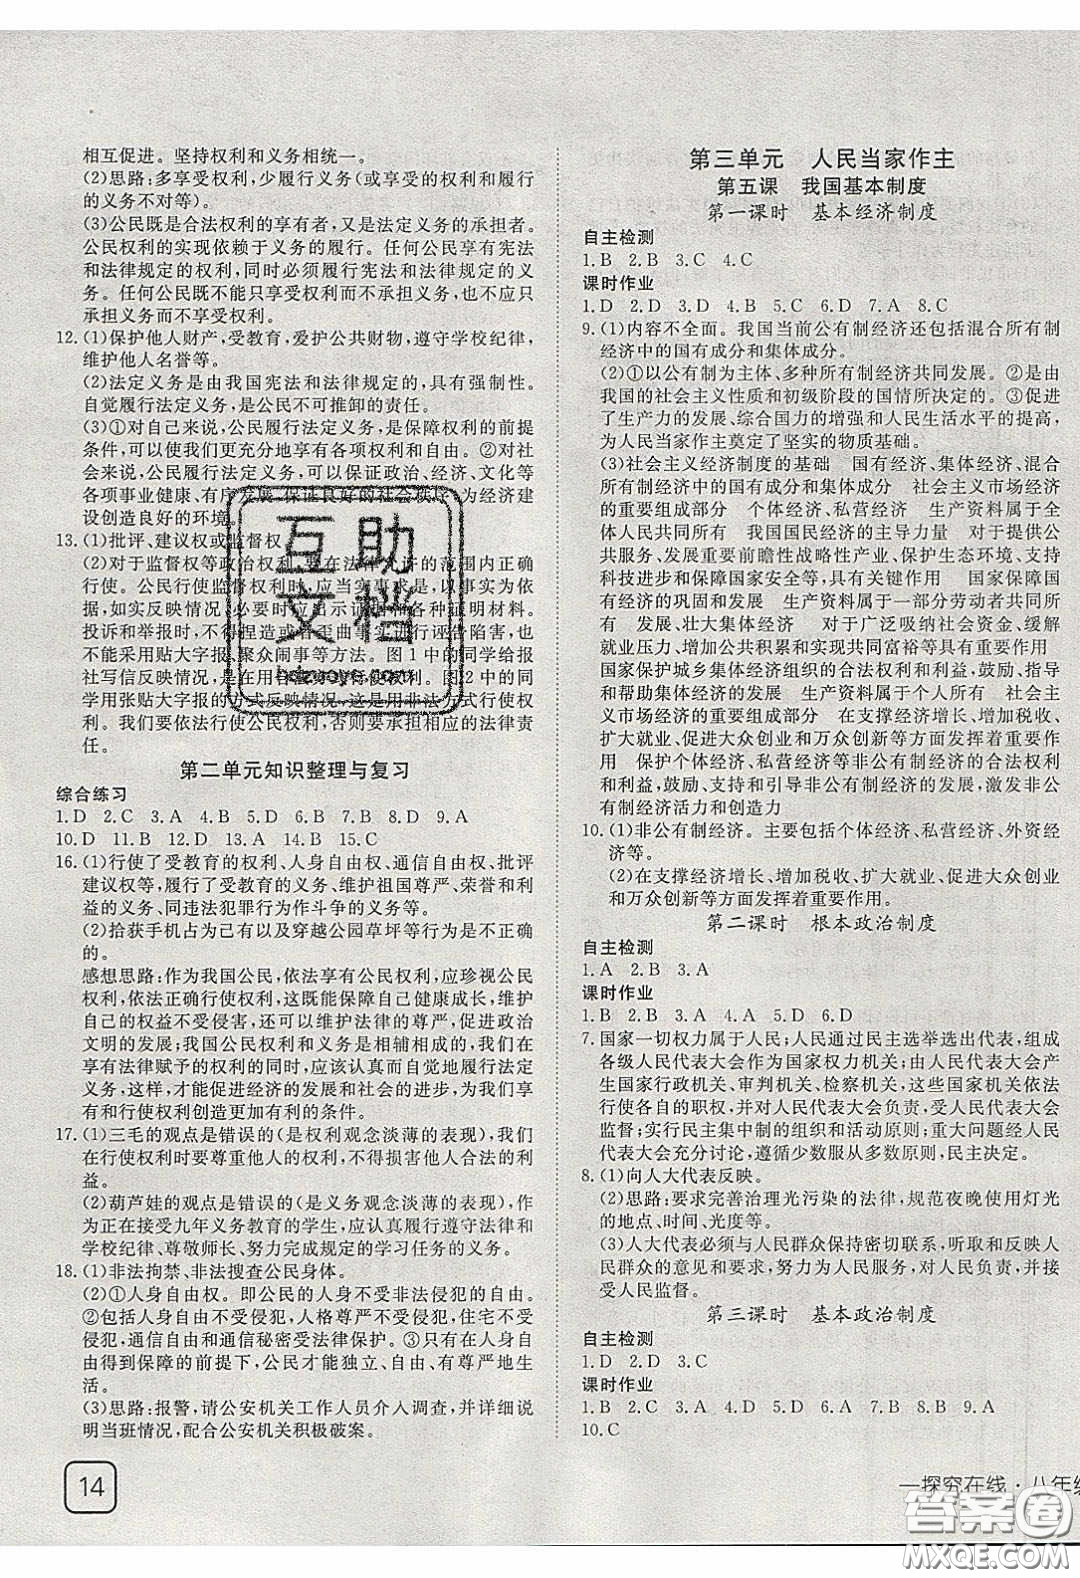 相互促进。坚持权利和义务相统一。
(2)思路:多享受权利,少履行义务(或享受的权利和履行
的义务不对等)。
(3)公民既是合法权利的享有者,又是法定义务的承担者。
公民权利的实现依赖于义务的履行。任何公民享有宪法
和法律规定的权利,同时必须履行宪法和法律规定的义
务。任何公民既不能只享受权利而不承担义务,也不应只
承担义务而不享受权利。
12. (1)保护他人财产,受教育,爱护公共财物,遵守学校纪律,
维护他人名誉等。
(2)法定义务是由我国宪法和法律规定的,具有强制性。
自觉履行法定义务,是公民不可推卸的责任。
(3)①对自己来说,公民履行法定义务,是保障权利的前提
条件,可以使我们更充分地享有各项权利和自由。②对社
会来说,公民履行法定义务,可以保证政治、经济、文化等
各项事业健康、有序发展,保证良好的社会秩序,为经济建
设创造良好的环境。
13. (1)批评、建议权或监督权。
(2)对于监督权等政治权利,要在法律允许的范围内正确
行使。公民行使监督权利时,应当实事求是,以事实为依
据,如实反映情况,必要时应出示证据和各种证明材料。
投诉和举报时,不得捏造或者歪曲事实进行诬告陷害,也
不能采用贴大字报、聚众闹事等方法。图1中的同学给报
社写信反映情况,是在合理合法行使权利。图2中的同
学用张贴大字报的方式反映情况,这是用非法方式行使权
利。我们要依法行使公民权利,否则要承担相应的法律责
任。
第二单元知识整理与复习
综合练习
1.D 2.C 3.A 4.B 5.D 6.B 7.D 8.D 9.A
10.D 11.B 12.D 13.A 14.B 15.C
16. (1)行使了受教育的权利、人身自由权、通信自由权、批评
建议权等,履行了受教育的义务、维护祖国尊严、荣誉和利
益的义务、同违法犯罪行为作斗争的义务等。
(2)拾获手机占为己有以及穿越公园草坪等行为是不对
的。
感想思路:作为我国公民,依法享有公民权利,应珍视公民
权利,依法正确行使权利,这既能保障自己健康成长,维护
自己的权益不受侵害,还可以维护法律的尊严,促进政治
文明的发展;我国公民权利和义务是相辅相成的,我们在
享有法律赋予的权利的同时,应该认真地自觉地履行法定
义务,这样,才能促进经济的发展和社会的进步,为我们享
有和行使权利创造更加有利的条件。
17. (1)三毛的观点是错误的(是权利观念淡薄的表现),我们
在行使权利时要尊重他人的权利,不得损害他人合法的利
益。
(2)葫芦娃的观点是错误的(是义务观念淡薄的表现),作
为正在接受九年义务教育的学生,应认真履行遵守法律和
学校纪律、尊敬师长、努力完成规定的学习任务的义务。
18. (1)非法拘禁、非法搜查公民身体。
(2)①人身自由权。即公民的人身不受非法侵犯的自由。
②包括人身自由不受侵犯,人格尊严不受侵犯,住宅不受
侵犯,通信自由和通信秘密受法律保护。③只有在人身自
由得到保障的前提下,公民才能独立、自由、有尊严地生
活。
(3)思路:报警,请公安机关工作人员介入调查,并详细说
明当班情况,配合公安机关积极破案。
14
第三单元 人民当家作主
第五课 我国基本制度
第一课时 基本经济制度
自主检测
1.B 2.B 3.C 4.C
课时作业
1.D 2.D 3.D 4.B 5.C 6.D 7.A 8.C
9. (1)内容不全面。我国当前公有制经济还包括混合所有制
经济中的国有成分和集体成分。
(2)①以公有制为主体、多种所有制经济共同发展。②是由
我国的社会主义性质和初级阶段的国情所决定的。③促进
了生产力的发展、综合国力的增强和人民生活水平的提高,
为人民当家作主奠定了坚实的物质基础。
(3)社会主义经济制度的基础 国有经济、集体经济、混合
所有制经济中的国有成分和集体成分 社会主义市场经济
的重要组成部分 个体经济、私营经济 生产资料属于全
体人民共同所有 我国国民经济的主导力量 对于提供公
共服务、发展重要前瞻性战略性产业、保护生态环境、支持
科技进步和保障国家安全等,具有关键作用 国家保障国
有经济的巩固和发展 生产资料属于一部分劳动者共同所
有 发展、壮大集体经济 对于广泛吸纳社会资金、缓解
就业压力、增加公共积累和实现共同富裕等具有重要作用
国家保护城乡集体经济组织的合法权利和利益,鼓励、指导
和帮助集体经济的发展 生产资料属于个人所有 社会主
义市场经济的重要组成部分 在支撑经济增长、增加税收、
扩大就业、促进大众创业和万众创新等方面发挥着重要作
用 保护个体经济、私营经济等非公有制经济的合法权利
和利益,鼓励、支持和引导非公有制经济的发展,激发非公
有制经济活力和创造力
10. (1)非公有制经济。主要包括个体经济、私营经济、外资经
济等。
(2)在支撑经济增长、增加税收、扩大就业、促进大众创业
和万众创新等方面发挥着重要作用。
第二课时 根本政治制度
自主检测
1.A 2.B 3.A
课时作业
1.D 2.B 3.A 4.A 5.D 6.D
7. 国家一切权力属于人民;人民通过民主选举选出代表,组成
各级人民代表大会作为国家权力机关;由人民代表大会产
生国家行政机关、审判机关、检察机关,这些国家机关依法
行使各自的职权,并对人民代表大会负责,受人民代表大会
监督;实行民主集中制的组织和活动原则;重大问题经人民
代表大会充分讨论,遵循少数服从多数原则,民主决定。
8. (1)向人大代表反映。
(2)思路:要求完善治理光污染的法律,规范夜晚使用灯光
的地点、时间、光度等。
(3)人大代表必须与人民群众保持密切联系,听取和反映人
民群众的意见和要求,努力为人民服务,对人民负责,并接
受人民监督。
第三课时 基本政治制度
自主检测
1.D 2.D 3.C
课时作业
1.B 2.C 3.B 4.D 5.C 6.A 7.B 8.C 9.A
10.C
一探究在线·八年级
互助
文档
答案圈
MXQE.COM